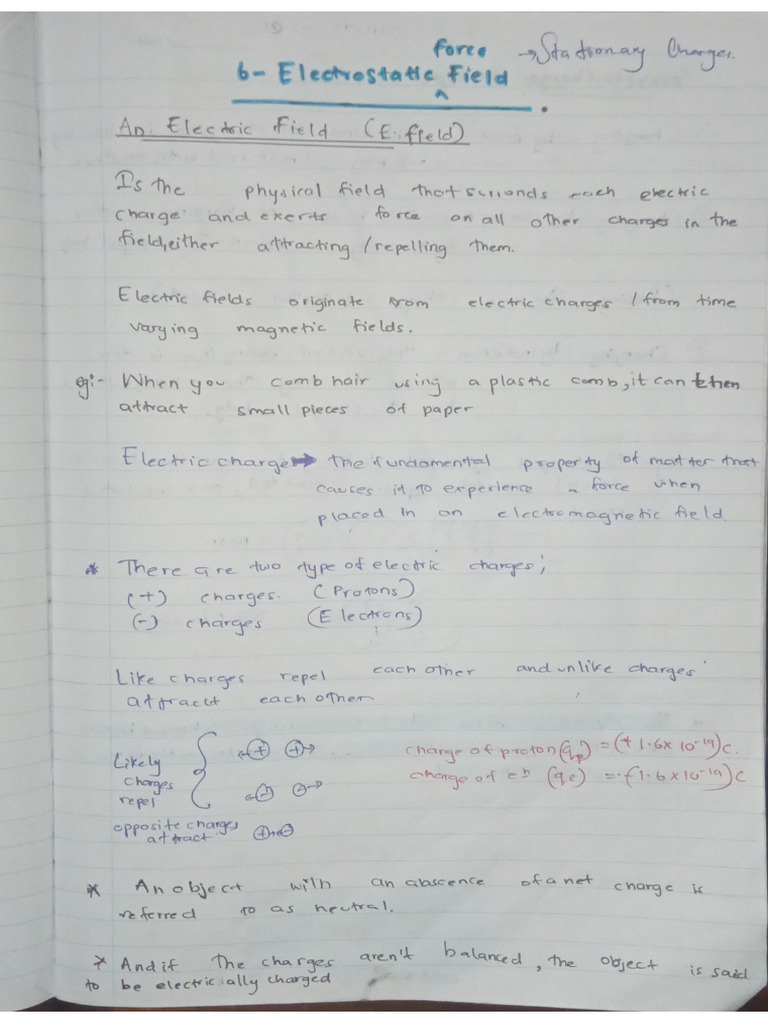 force → Stationary Charges.
6- Electrostatic ^ Field
An Electric Field (E. field)
Is the physical field that surronds each electric
charge and exerts force on all other charges in the
field, either attracting / repelling them.
Electric fields originate from electric charges / from time
varying magnetic fields.
eg:- When you comb hair using a plastic comb, it can then
attract small pieces of paper
Electric charge → the fundamental property of matter that
causes it to experience a force when
placed in an electromagnetic field.
* There are two type of electric charges;
(+) charges. (Protons)
(-) charges (Electrons)
Like charges repel each other and unlike charges
attract each other
Likely charges repel
← + + →
← - - →
charge of proton (qp) = (+ 1.6 x 10-19) C.
charge of en (qe) = -(1.6 x 10-19) C
opposite charges attract
+ -
* An object with an abscence of a net charge is
referred to as neutral.
* And if the charges aren't balanced, the object is said
to be electrically charged